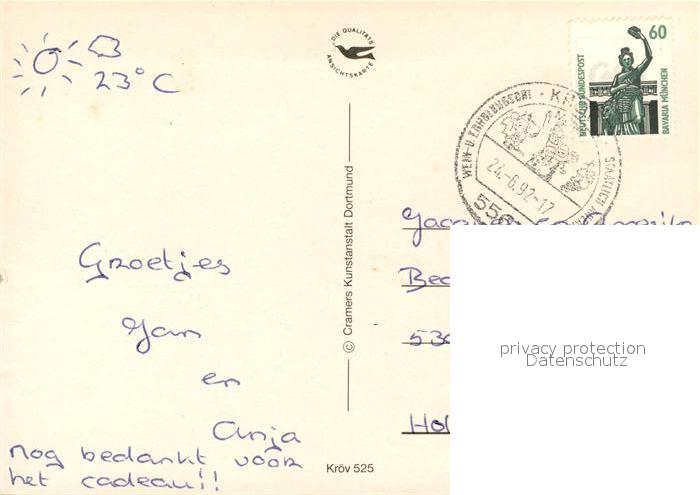 23° C
DIE QUALITÄTS
ANSICHTSKARTE
60
DEUTSCHE BUNDESPOST
BAVARIA MÜNCHEN
WEIN- U. ERHOLUNGSORT · KR
STAATLICH
24.-6.92-17
Groetjes
Jan
en
Anja
nog bedankt vóór
het cadeau!!
© Cramers Kunstanstalt Dortmund
Kröv 525
530
Hol
privacy protection
Datenschutz